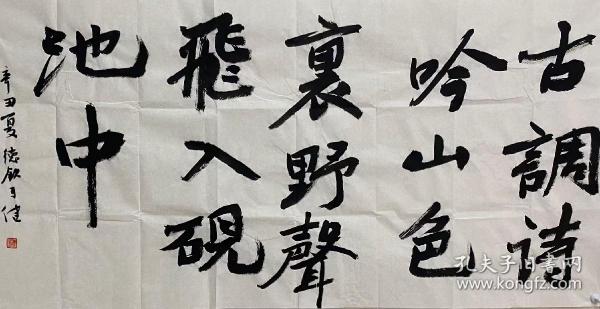 古調詩
吟山色
裏野聲
飛入硯
池中
辛丑夏德欽于健
孔夫子旧书网
www.kongfz.com